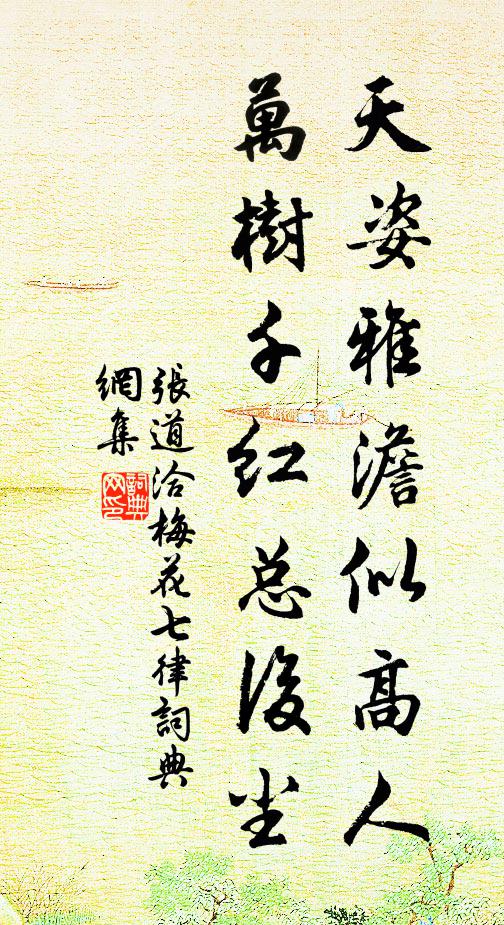 天姿雅澹似高人
萬樹千红总後尘
張道洽梅花七律詞典
網集
詞典
网印